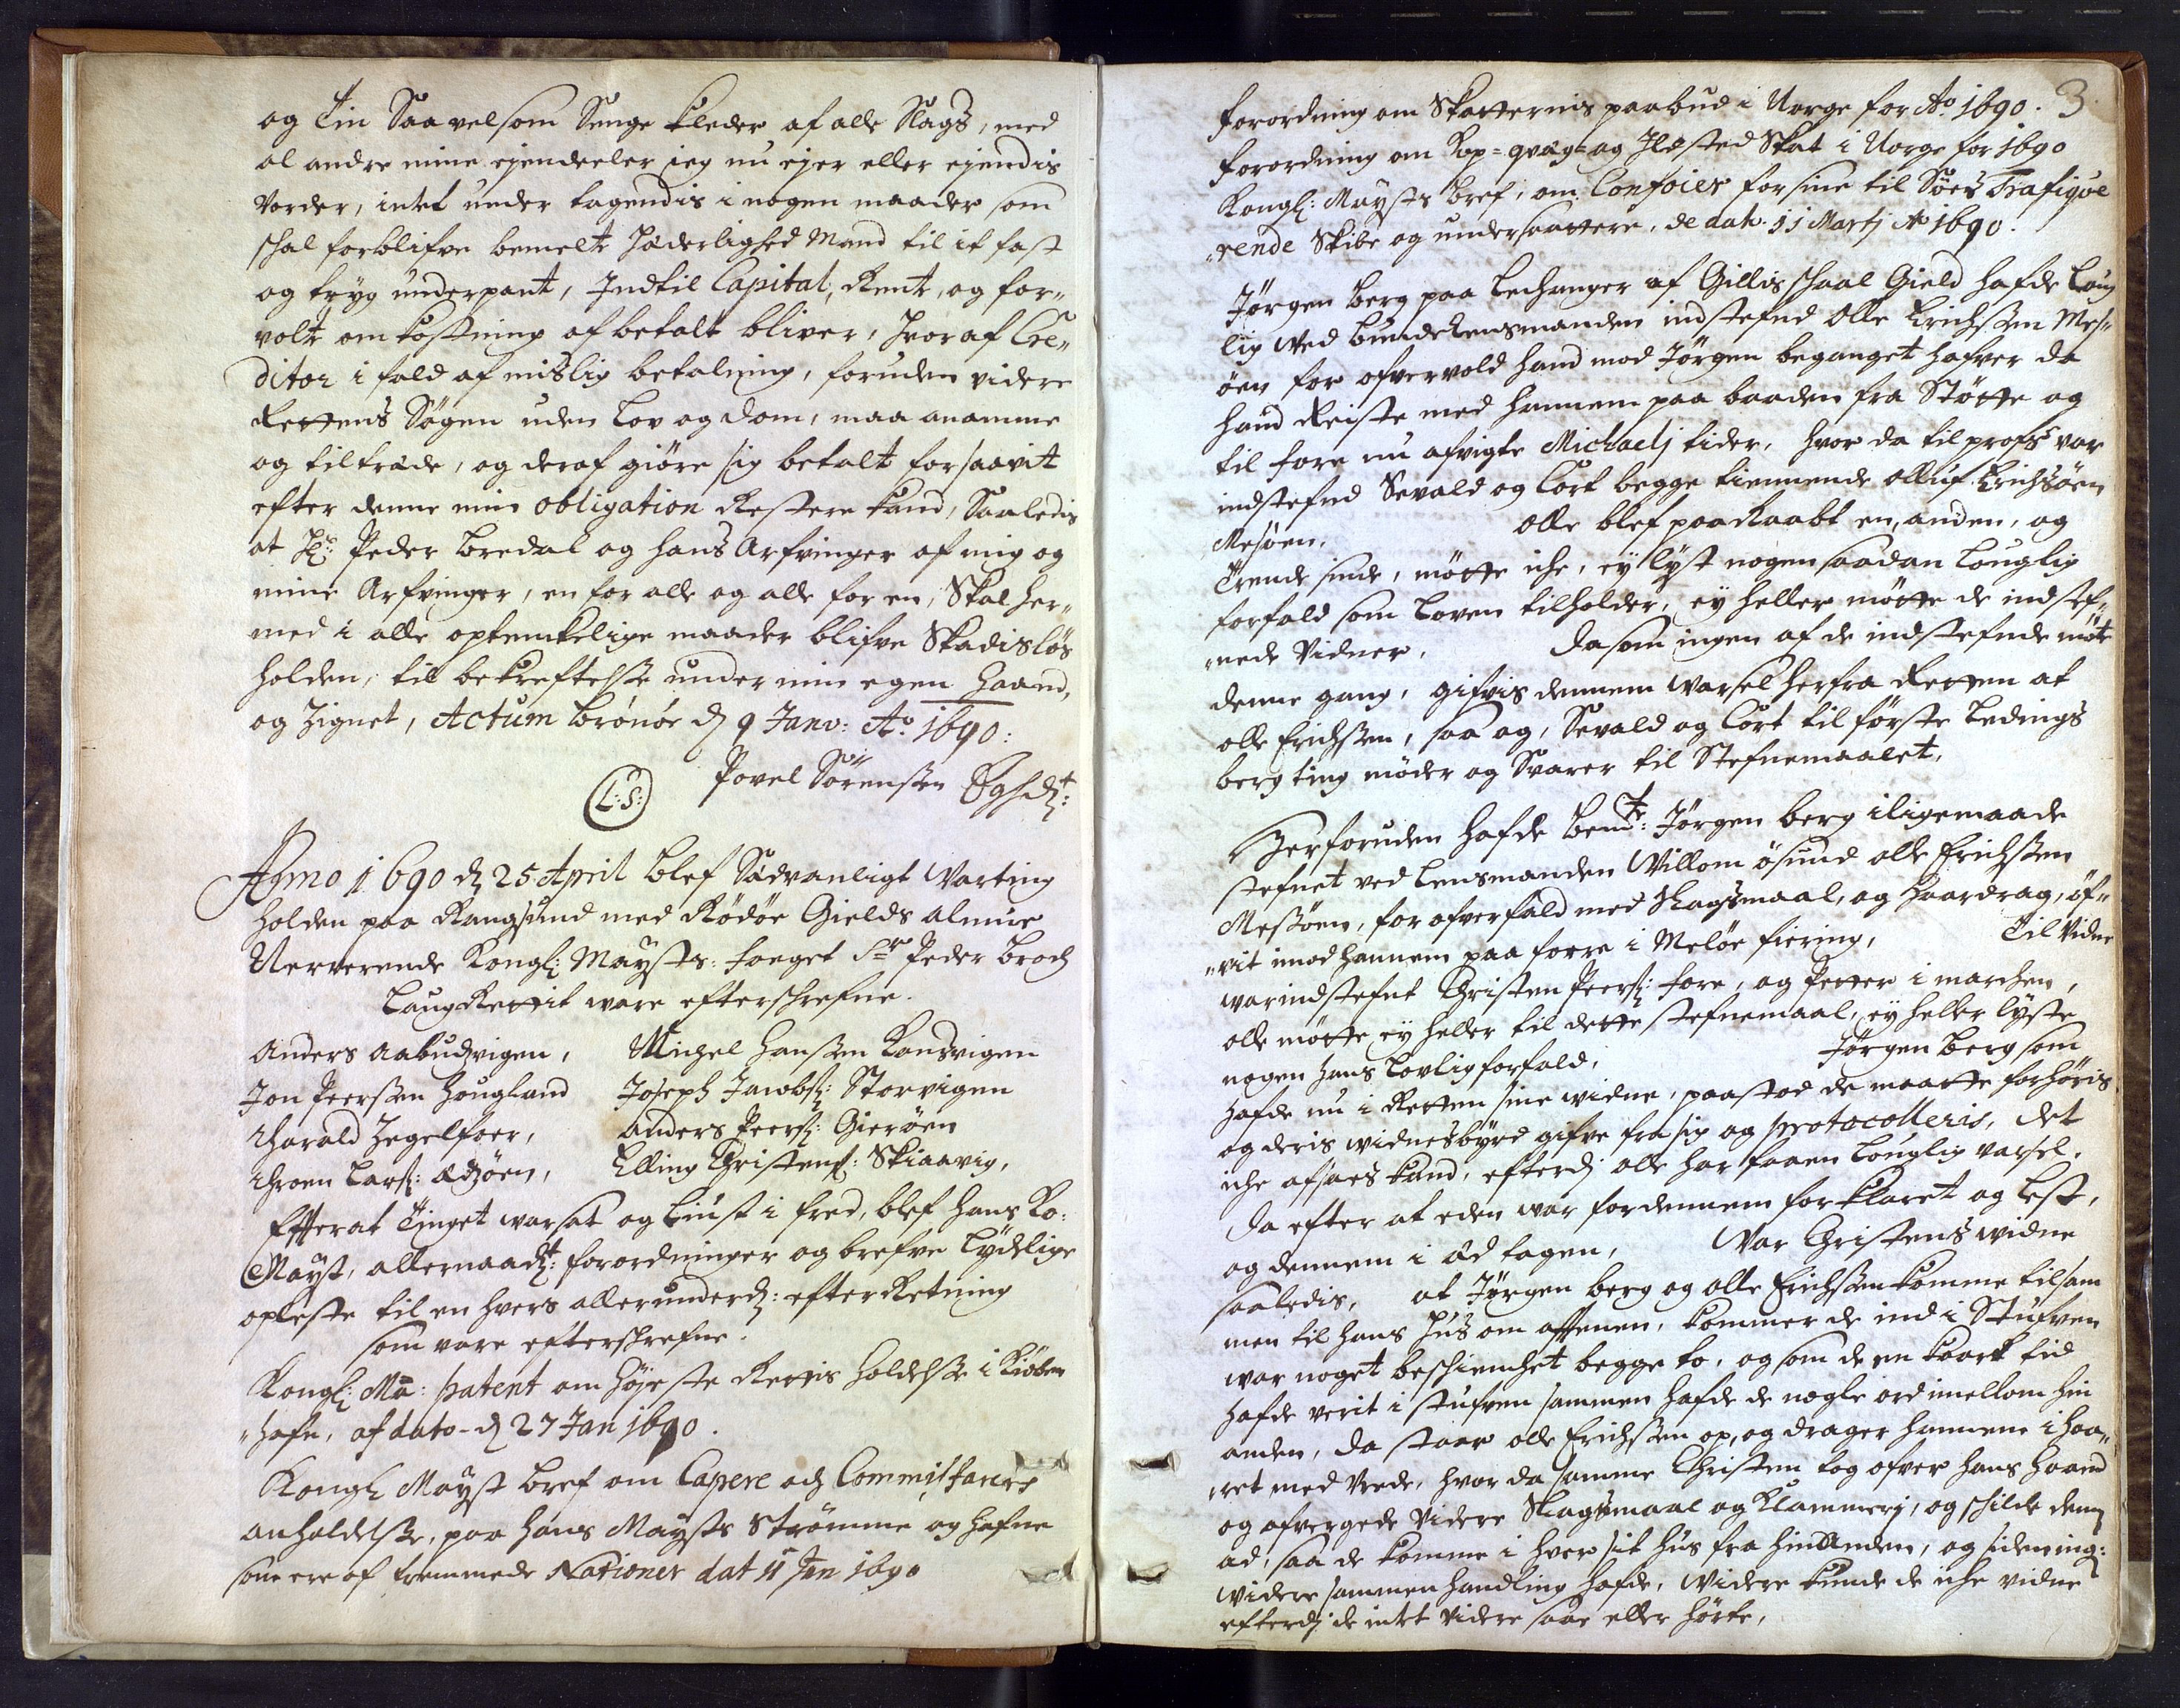 og Tin Saavelsom Senge kleder af alle Slags, med
al andre mine ejendeeler jeg nu ejer eller ejendis
vorder, intet under tagendis i nogen maader som
schal forblifve bemelte Hæderlighed Mand til it fast
og tryg underpant, Indtil Capital, Rent, og for„
volte omkostning af betalt bliver, Hvoraf Cre„
ditor i fald af mislig betalning, foruden videre
Rettens Søgen uden Lov og dom, maa anamme
og tiltræde, og deraf giøre sig betalt forsaavit
efter denne min obligation Restere kand, Saaledis
at Hr: Peder Bredal og hans Arfvinger af mig og
mine Arfvinger, en for alle og alle for en, Skal her„
med i alle optenkelige maader blifve Skadisløs
holden, til bekreftelsse under min egen Haand,
og Zignet, Actum Brönöe d 9 Janv: Ao 1690:
(L:S:) Povel Sörenssen
Anno 1690 d 25 April blef Sædvanligt Varting
holden paa Rangsund med Rödöe Gields almue
Nerverende Kongl: Maysts: foeget Sr Peder Broch
LaugRettit ware efterschrefne.
Anders Aabudvigen, Michel Hanssen Kandvigen
Jon Peerssen Hougland Joseph Jacobs: Storvigen
Harald Hegelfoer, Anders Peers: Gieröen
Chroen Lars: Ædzöen, Elling Christens: Skiaavig,
Efter at Tinget war sat og liust i fred, blef hans Ko:
Mayst, allernaadt: forordninger og brefve Lydelige
opleste til en hvers allerunderd: efterRetning
som vare efterschrefne.
Kongl: Ma: patent om Højeste Rettis Holdelsse i Kiøben
„hafn, af dato d 27 Jan 1690.
Kongl Mayst bref om Capere och Commisfarers
anholdelsse, paa hans Maysts Strömme og hafne
som ere af fremmede Nationer dat 11 Jan 1690
3.
forordning om Skatternis paabud i Norge for Ao. 1690.
forordning om Kop= qvæg= og Ildsted Skat i Norge for 1690
Kongl: Maysts bref, om Confoier for sine til Søes Trafiqve
„rende Skibe og undersaattere, de dato 11 Martj Ao 1690.
Jörgen berg paa Lechanger af Gillis schaal Gield hafde Loug
lig wed bunde Lensmanden indstefnd Olle Erichssen Mes„
öen for ofvervold hand mod Jörgen beganget hafver da
hand Reiste med hannem paa baaden fra Stötte og
til fore nu afvigte Michaelj tider, hvor da til profs var
indstefnd Sevald og Cort begge tiennende olluf Erichsöen
Mesöen, olle blef paaRaabt en, anden, og
Trende sinde, mötte iche, ej lyst nogen saadan Louglig
forfald som Loven tilholder, ej heller mötte de indstef„
„nede Vidner, da som ingen af de indstefnde möte
denne gang, gifvis dennem warsel herfra Retten at
olle Erichssen, saa og, Sevald og Cort til förste Ledings
berg ting möder og Svarer til Stefnemaalet,
Herforuden hafde bemte: Jörgen berg iligemaade
stefnet ved Lensmanden Willom ösund olle Erichssen
Messöen, for ofverfald med Slagsmaal, og haardrag, öf„
„vit imod hannem paa forre i Melöe fiering, Til Vidne
war indstefnt Christen Peers: fore, og Petter i marchen,
olle mötte ej heller til dette stefnemaal, ej heller lyste
nogen hans Lovlig forfald, Jörgen berg som
hafde nu i Retten sine widne, paastod de maatte forhöris
og deris widnesbyrd gifve fra sig og protocolleris, det
iche afsaes kand, efterdj olle har faaen Louglig varsel.
da efter at eden war for dennem forklaret og lest,
og dennem i æd tagen, War Christens widne
saaledis, at Jörgen berg og olle Erichssen komme tilsam
men til hans Hus om afftenen, kommer de ind i Stufven
war noget beschienchet begge to, og som de en kaart tid
hafde verit i stufven sammen hafde de nogle ord imellom hin
anden, da staar olle Erichssen op, og drager hannem i haa„
„ret med vrede, hvor da samme Christen tog ofver hans haand
og afvergede videre Slagsmaal og Klammerj, og schilte dem
ad, saa de komme i hver sit hus fra hinanden, og siden ing:
widere sammenhandling hafde, widere kunde de iche vidne
efterdj de intet videre saae eller hörte,